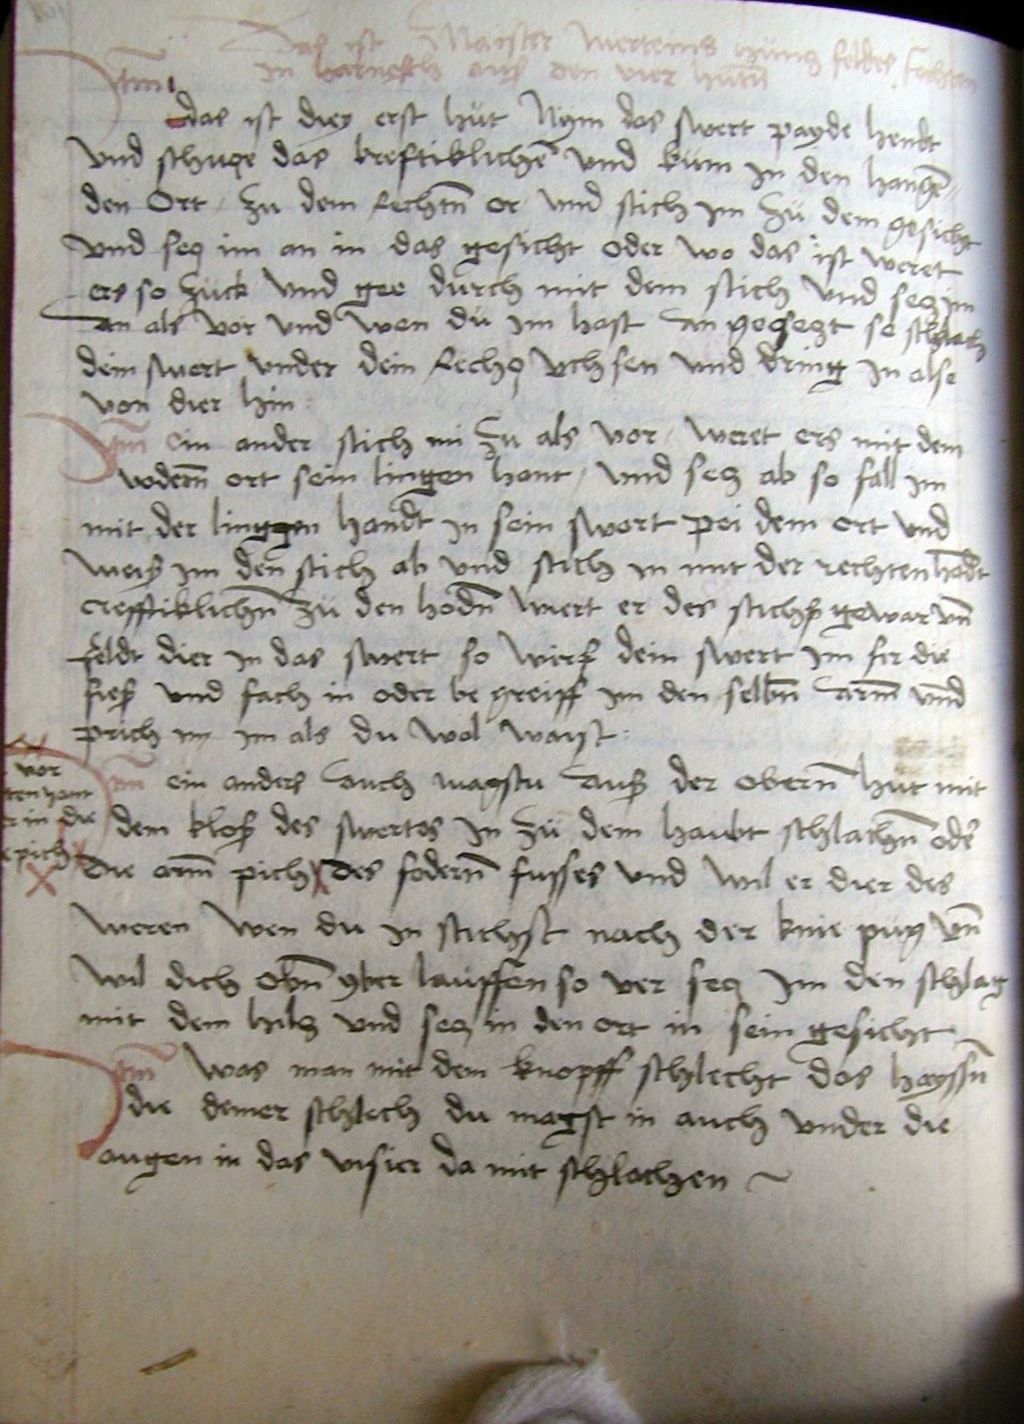 Das ist Maister Merteins hüntz feldes fechten
in harnesch aus den vier hutn̄
Itm̄
das ist diey erst hüt Nym das swert payde hendt
vnd schuge das kreftiklichē vnd küm in den hangē
den Ort zu dem rechtn̄ or vnd stich im zü dem gesicht
vnd secz im an in das gesicht oder wo das ist weret
ers so zuck vnd gee durch mit dem stich vnd secz im
an als vor vnd wen du im hast an gesezt so schlach
dein swert vnder dein rechcz vchsen vnd dring in also
von dier hin
Itm̄ ein ander stich im zu als vor weret ers mit dem
vodern̄ ort sein lingen hant vnd secz ab so fall im
mit der linggen handt in sein swert pei dem ort vnd
weis im den stich ab vnd stich in mit der rechten hādt
crefftiklichn̄ zü den hodn̄ wiert er des stichs gewar vn̄
feldt dier in das swert so wirf dein swert im fir die
fies vnd fach in oder be greiff im den selbn̄ arm̄ vnd
prich in im als du wol wayst
Itm̄ ein anders auch magstu aus der obern̄ hut mit
dem klos des swertes in zü dem haubt schlachn̄ oder
die arm̄ pich des fodern̄ fusses vnd wil er dier des
vor
ten hant
er in die
pich
weren wen du in stichst nach der knie püg vn̄
wil dich obn̄ yber lauffen so ver secz im den schlag
mit dem hilcz vnd secz in den ort in sein gesicht
Itm̄ was man mit dem knopff schlecht das hayssn̄
die demer schlech du magst in auch vnder die
augen in das visier da mit schlachen